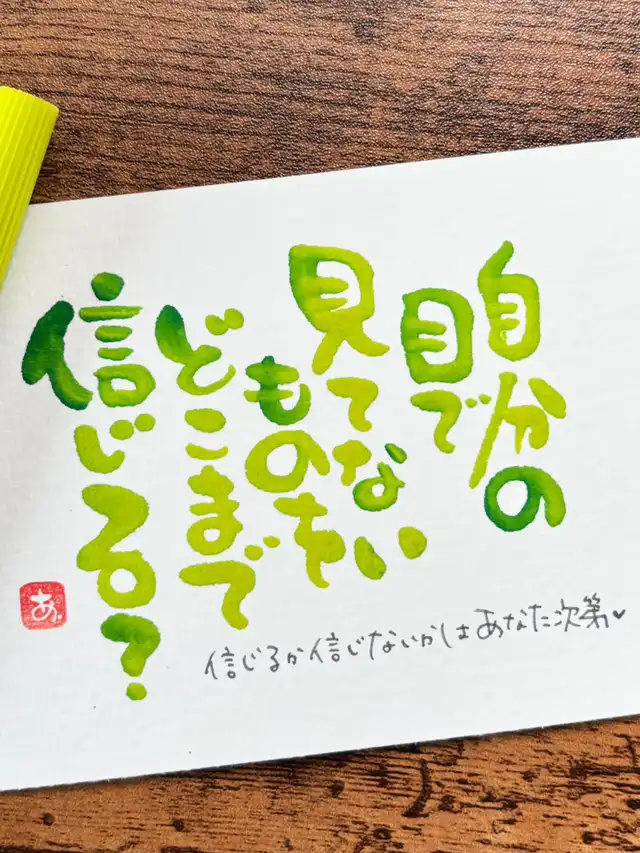 自分の
目で
見てない
ものを
どこまで
信じる?
信じるか信じないかはあなた次第♥
あ